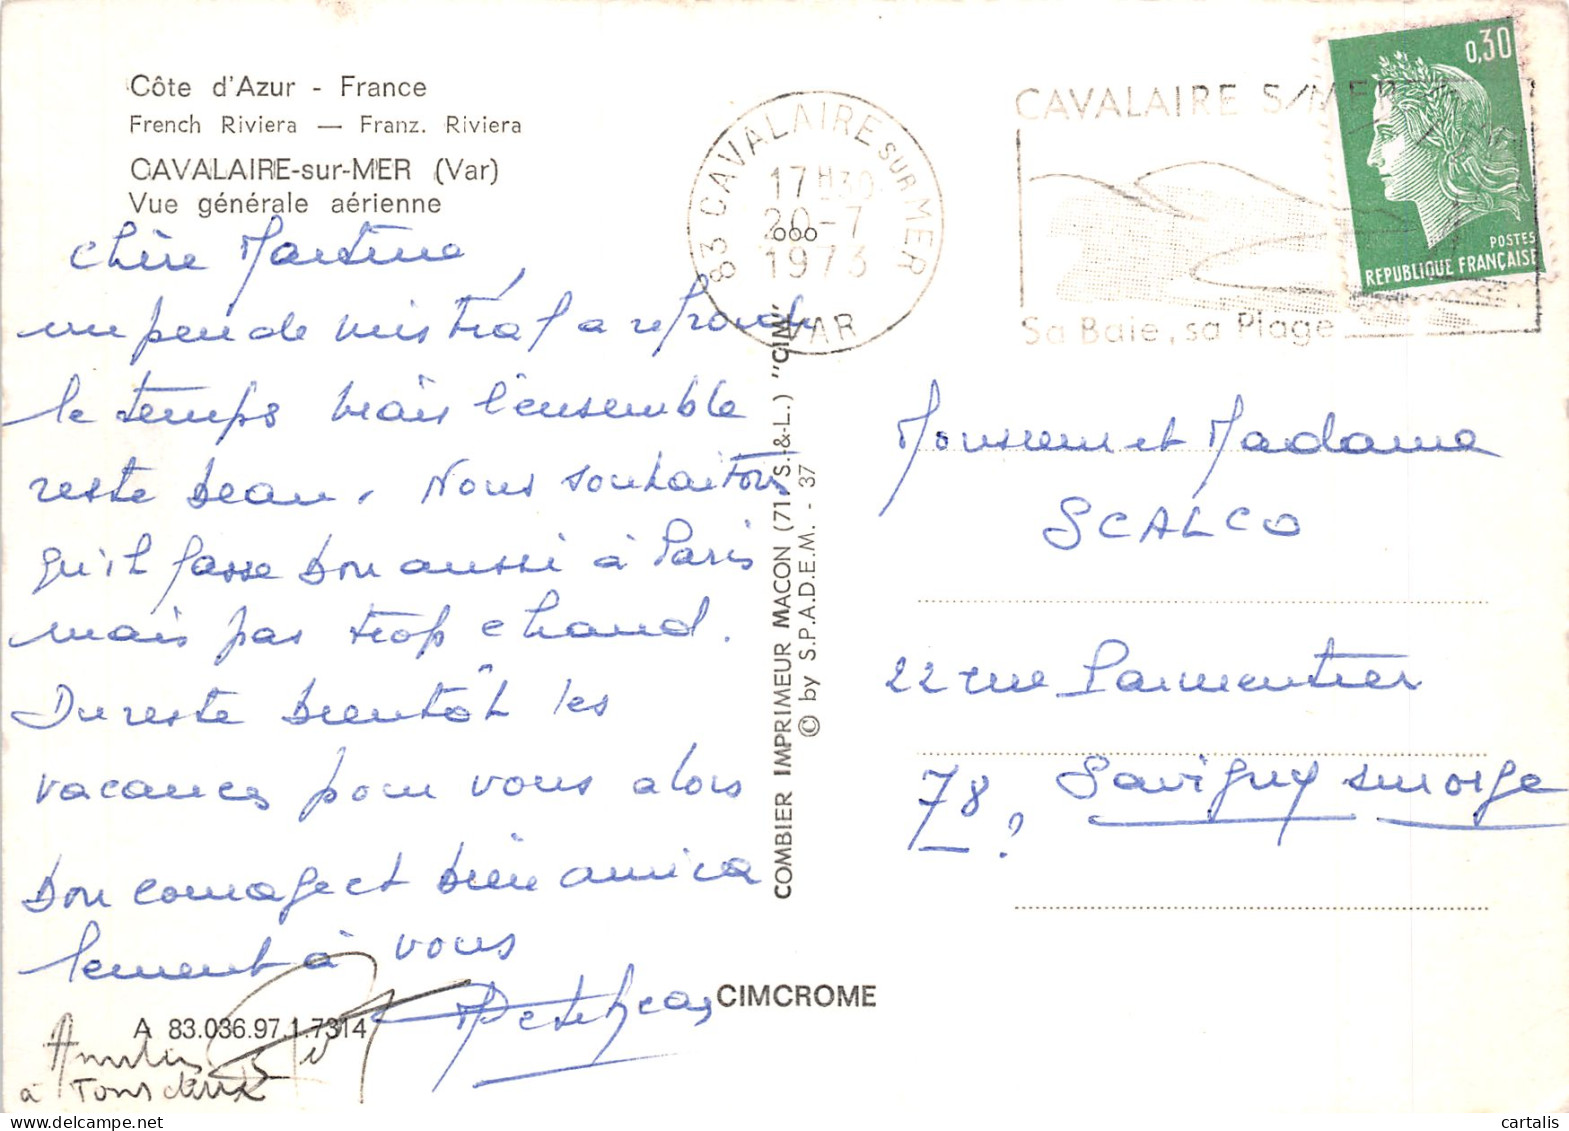 Côte d'Azur - France
French Riviera — Franz. Riviera
CAVALAIRE-sur-MER (Var)
Vue générale aérienne
chère Martine,
un peu de mistral a refroidi
le temps mais l'ensemble
reste beau. Nous souhaitons
qu'il fasse bon aussi à Paris
mais pas trop chaud.
Du reste bientôt les
vacances pour vous alors
bon courage et bien amica
lement à vous
A 83.036.97.1.7314
à Tous deux
CIMCROME
COMBIER IMPRIMEUR MACON (71 / S.-&-L.) "CIM"
© by S.P.A.D.E.M. - 37
83 CAVALAIRE SUR MER
17H30
20-7
1973
VAR
CAVALAIRE S/MER
Sa Baie, sa Plage
0,30
POSTES
REPUBLIQUE FRANÇAISE
Monsieur et Madame
SCALCO
22 rue Parmentier
78? Savigny sur orge
cartalis
delcampe.net